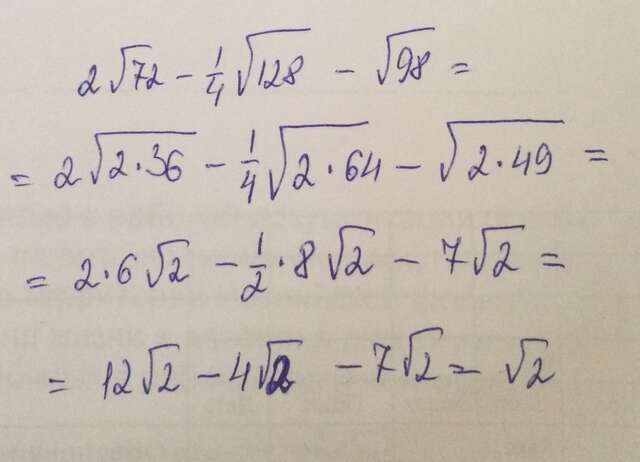 2√72 - 1/4√128 - √98 =
= 2√2·36 - 1/4√2·64 - √2·49 =
= 2·6√2 - 1/2·8√2 - 7√2 =
= 12√2 - 4√2 - 7√2 = √2